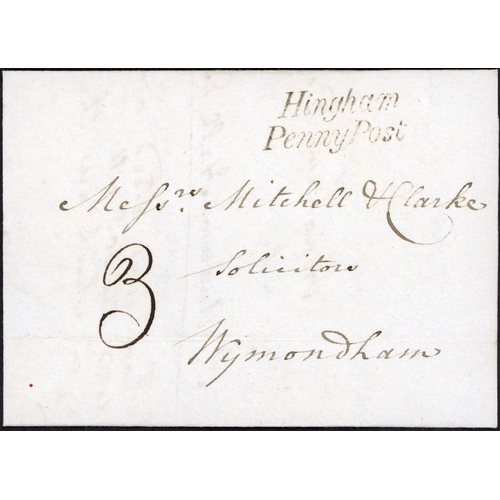 Hingham
Penny Post
Messrs. Mitchell & Clarke
Solicitors
3
Wymondham